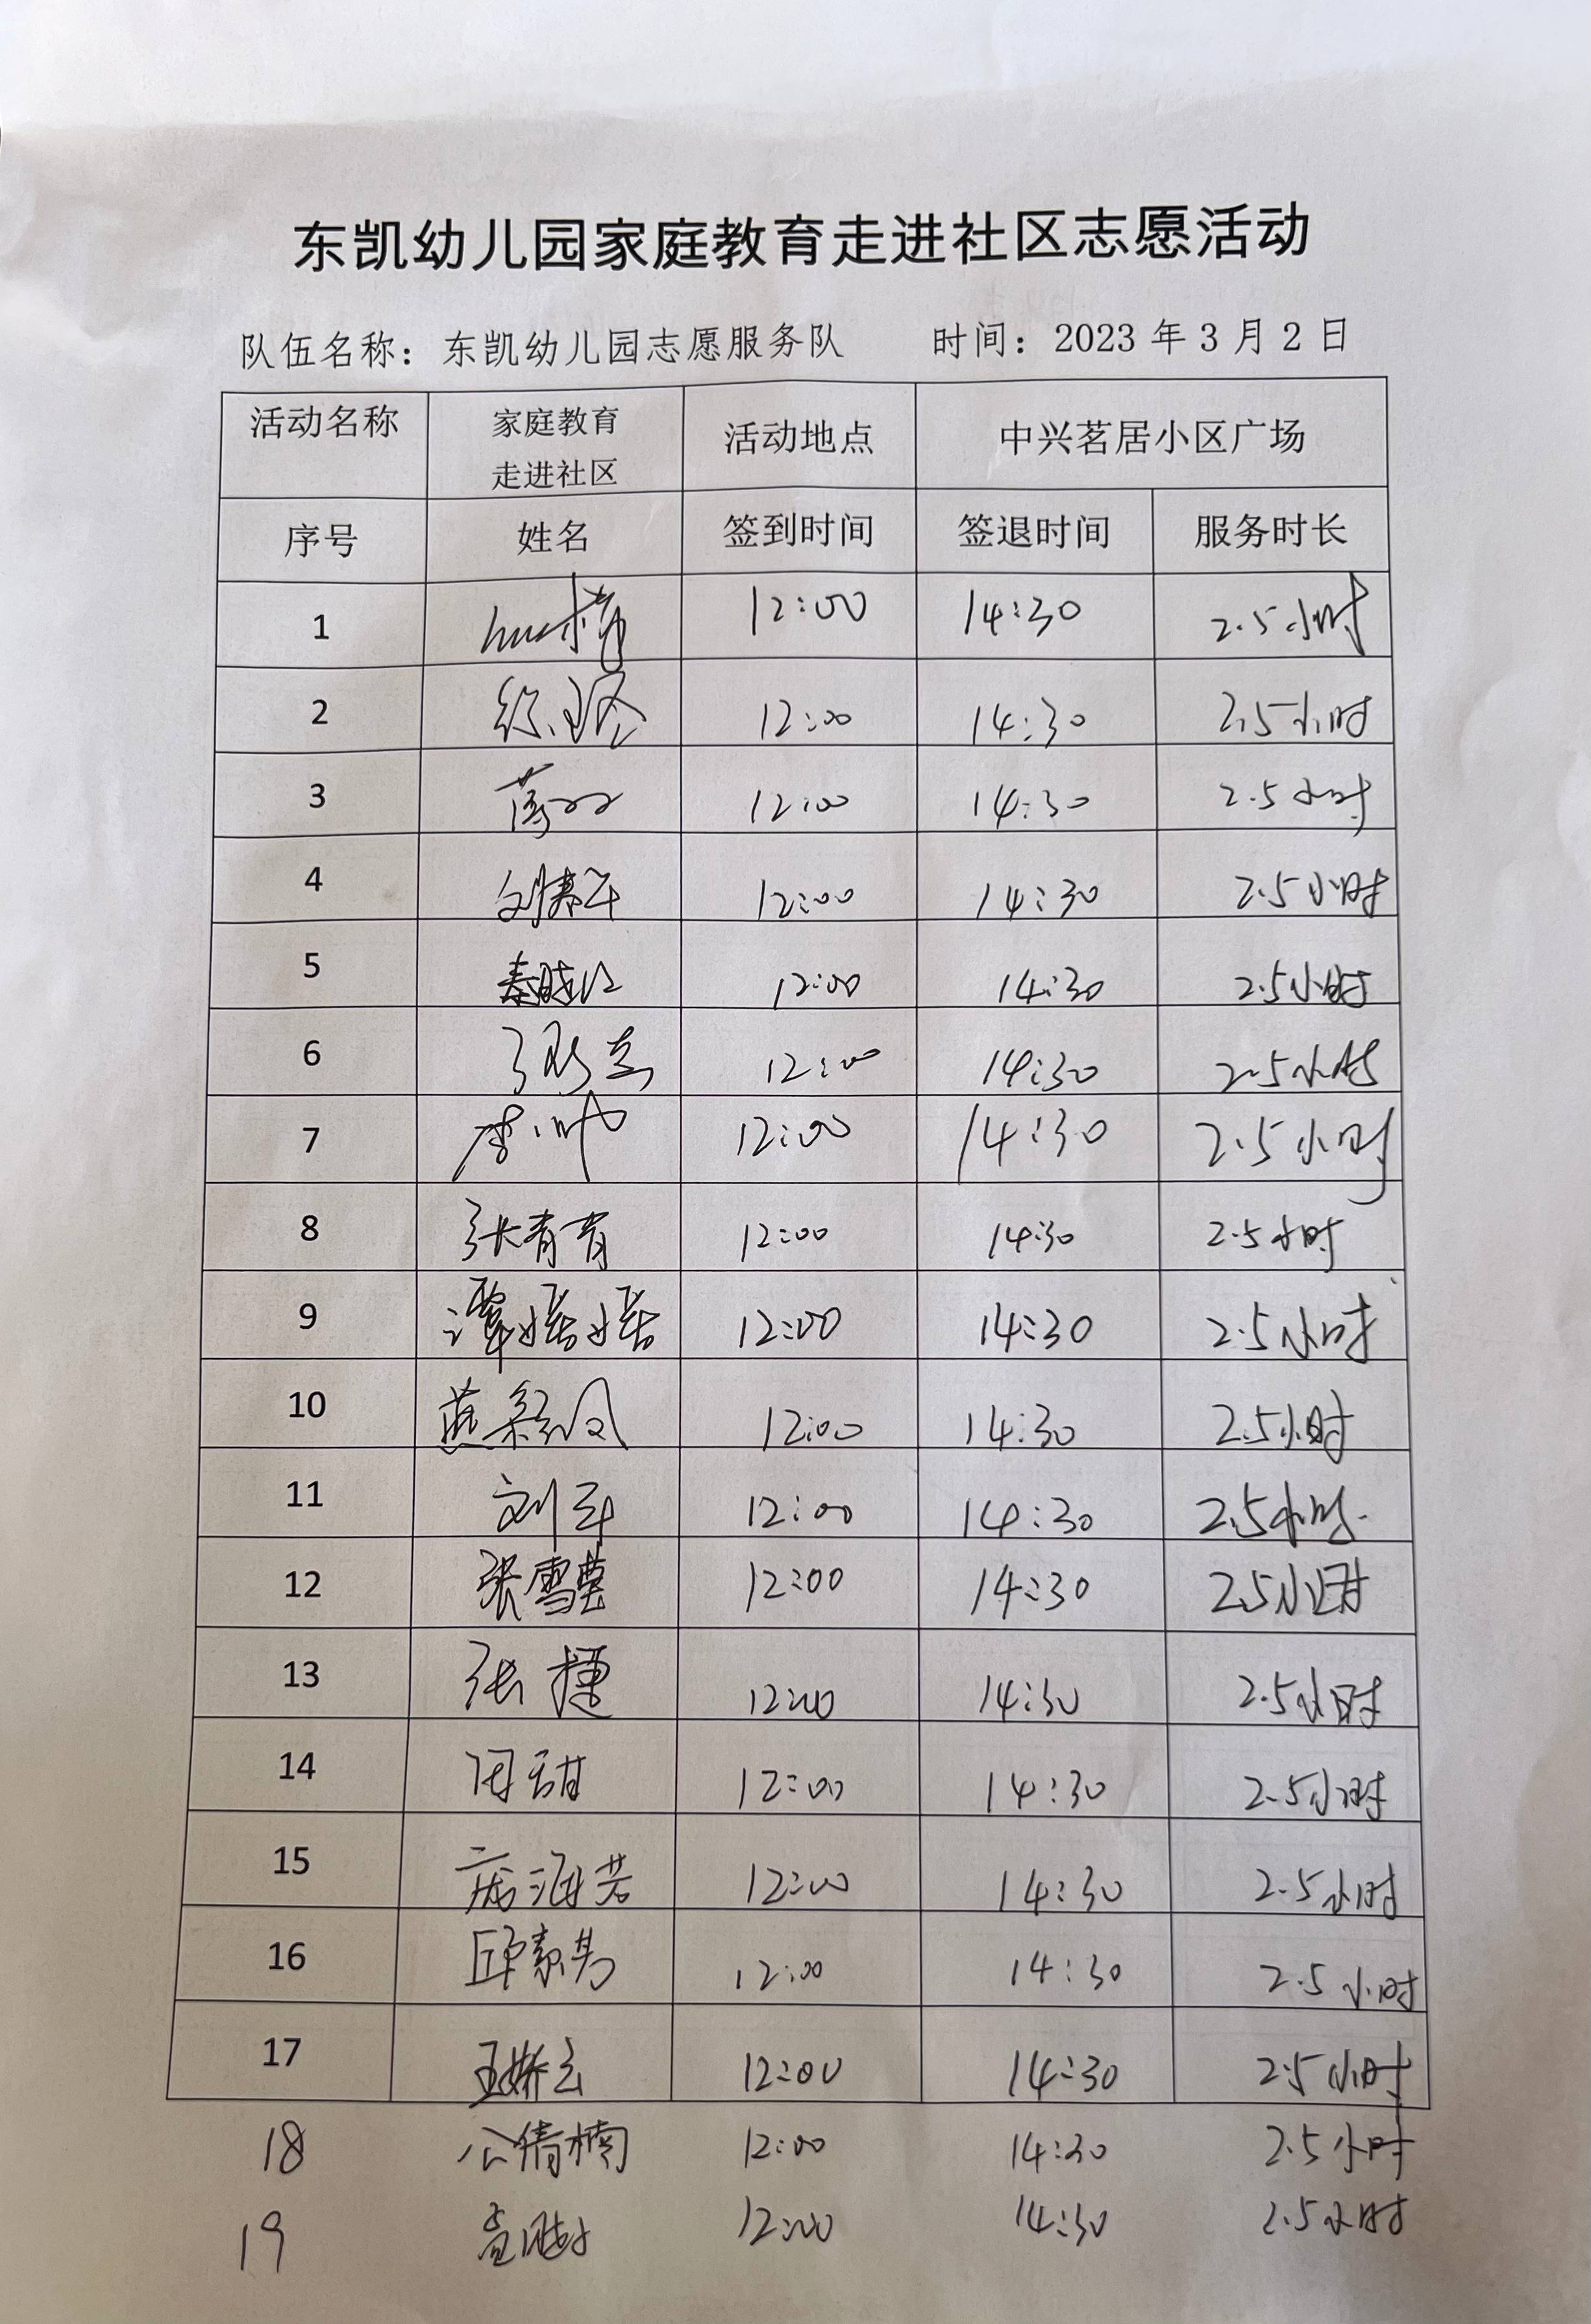 东凯幼儿园家庭教育走进社区志愿活动
队伍名称：东凯幼儿园志愿服务队 时间：2023 年 3 月 2 日
活动名称 家庭教育 活动地点 中兴茗居小区广场
走进社区
序号 姓名 签到时间 签退时间 服务时长
1 12:00 14:30 2.5小时
2 12:00 14:30 2.5小时
3 12:00 14:30 2.5小时
4 12:00 14:30 2.5小时
5 秦晓 12:00 14:30 2.5小时
6 12:00 14:30 2.5小时
7 12:00 14:30 2.5小时
8 张青青 12:00 14:30 2.5小时
9 谭婷婷 12:00 14:30 2.5小时
10 12:00 14:30 2.5小时
11 刘军 12:00 14:30 2.5小时
12 张雪莹 12:00 14:30 2.5小时
13 张捷 12:00 14:30 2.5小时
14 周甜 12:00 14:30 2.5小时
15 庞海芳 12:00 14:30 2.5小时
16 邱素男 12:00 14:30 2.5小时
17 王娇云 12:00 14:30 2.5小时
18 公倩楠 12:00 14:30 2.5小时
19 12:00 14:30 2.5小时